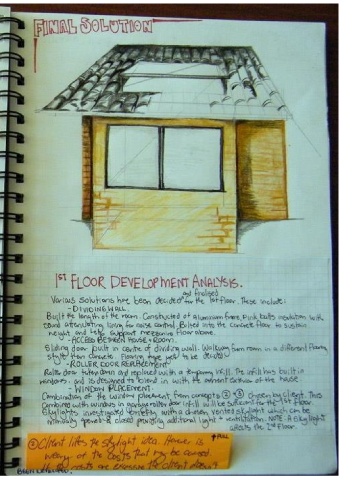 FINAL SOLUTION
1ST FLOOR DEVELOPMENT ANALYSIS.
Various solutions have been decided and finalised for the 1st floor. These include:
- DIVIDING WALL
Built the length of the room. Constructed of aluminium frame, Pink batts insulation with
sound attenuating lining for noise control. Bolted into the concrete floor to sustain
height and help support mezzanine floor above.
- ACCESS BETWEEN HOUSE + ROOM.
Sliding door built in centre of dividing wall. Walkway from room in a different flooring
style than concrete. Flooring type yet to be decided.
- ROLLER DOOR REPLACEMENT
Roller door taken down and replaced with a temporary infill. The infill has built in
windows and is designed to blend in with the exterior of the house
- WINDOW PLACEMENT
Combination of the window placement from concepts 2 + 3 chosen by client. This
Combined with windows in roller door infill will be sufficient for the 1st floor.
Skylights investigated with a chosen vented skylight which can be
opened & closed providing additional light + ventilation. NOTE: A skylight
affects the 2nd Floor.
Client likes the skylight idea. However is
weary of the costs that may be